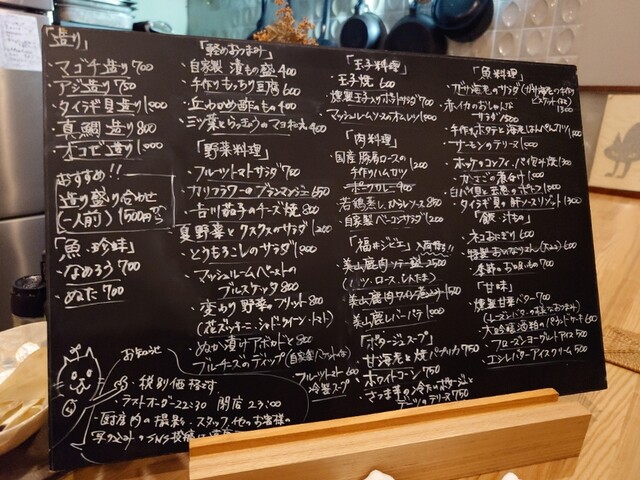 「造り」
・マゴチ造り 700
・アジ造り 750
・タイラギ貝造り 1000
・真鯛造り 800
・オコゼ造り 1000
おすすめ!!
造り盛り合わせ
(一人前) 1500円〜
「魚・珍味」
・なめろう 700
・ぬた 700
「軽めおつまみ」
・自家製 漬もの盛 400
・手作りもっちり豆腐 600
・三ツ葉とらっきょうのマヨ和え 400
「野菜料理」
・フルーツトマトサラダ 700
・カリフラワーのブランマンジェ 650
・吉川茄子のチーズ焼 800
・夏野菜とクスクスのサラダ 1200
・とうもろこしのサラダ 1000
・マッシュルームペーストの
ブルスケッタ 800
・変わり野菜のフリット 800
(花ズッキーニ・シャドークイーン・トマト)
・ぬか漬けアボカドと 800
ブルーチーズのディップ
「玉子料理」
・玉子焼 600
・燻製玉子入りポテトサラダ 700
・マッシュルームソースのオムレツ 1000
「肉料理」
・国産豚肩ロースの
手作りハムカツ 1200
・若鶏蒸し、からしソース 850
・自家製ベーコンサラダ 1200
「福井ジビエ」入荷待ち!!
・美山鹿肉ソテー盛 2500
・美山鹿肉ワイン煮込み 1500
・美山鹿レバーパテ 1000
「ポタージュスープ」
・甘海老と焼パプリカ 750
・ホワイトコーン 750
・さつま芋の冷たいポタージュと
チーズのテリーヌ 750
フルーツトマト 600
冷製スープ
「魚料理」
・赤イカのおしゃれな
サラダ 1500
・手作りホタテと海老はんぺんカツ 1100
・サーモンのテリーヌ 1000
・ホッケのコンフィ、パイ包み焼 1300
・タイラギ貝の肝ソースリゾット 1300
「飯・汁もの」
・ねこおにぎり 600
・季節のお吸いもの 700
「甘味」
・燻製甘栗バター 700
・大吟醸酒粕のパウンドケーキ 600
・フローズンヨーグルトアイス 500
・エシレバターアイスクリーム 500
お知らせ
・税別価格です
・ラストオーダー22:30 閉店23:00
・厨房内の撮影・スタッフ、他のお客様の